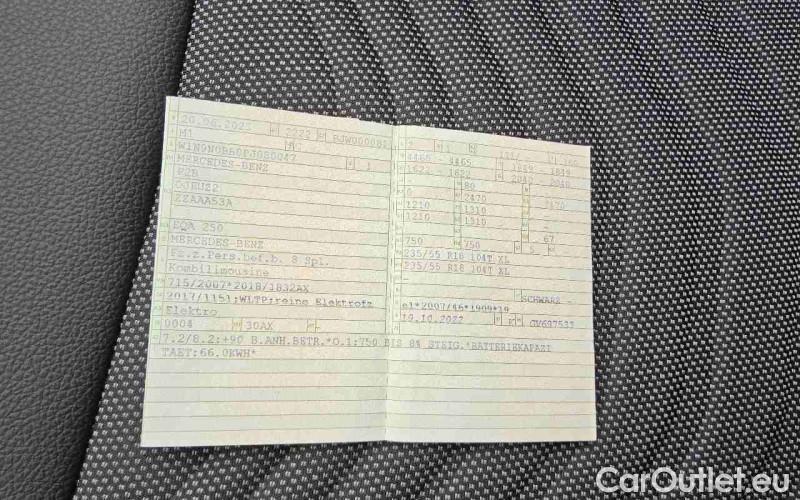 20.06.2023 2222 BJW000081
M1 AC
W1N9N0BB0PJ080047 1
MERCEDES-BENZ
F2B
OJEUZ2
ZZAAA53A
EQA 250
MERCEDES-BENZ
Fz.z.Pers.bef.b. 8 Spl.
Kombilimousine
715/2007*2018/1832AX
2017/1151;WLTP;reine Elektrofz
Elektro
0004 30AX -
7.2/8.2:+90 B.ANH.BETR.*O.1:750 BIS 8% STEIG.*BATTERIEKAPAZI
TAET:66.0KWH*
4465 - 4465 1849 1849
1622 - 1622 2040 2040
80
0 2470 2470
1210 1310 -
1210 1310 -
- 67
750 750 5 -
235/55 R18 104T XL
235/55 R18 104T XL
SCHWARZ -
e1*2007/46*1909*19
19.10.2022 GV697533
CarOutlet.eu